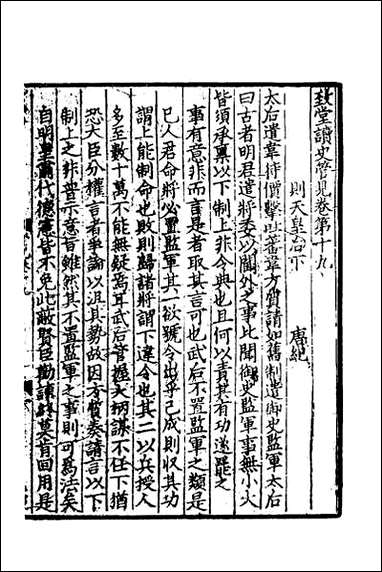 致堂讀史管見卷第十九
則天皇后下　唐紀
太后遣韋待價擊吐蕃韋方質請如舊制遣御史監軍太后
曰古者明君遣將委以閫外之事比聞御史監軍事無小大
皆須承稟以下制上非令典也且何以責其有功遂罷之
事有意非而言是者取其言可也武后不置監軍之類是
已人君命將必置監軍其一欲號令出乎己成則收其功
謂上能制命也敗則歸諸將謂下違令也其二以兵授人
多至數十萬不能無疑焉耳武后管握大柄謀不任下猶
恐大臣分權言者爭論以沮其勢故因方質奏請言以下
制上之非普示意旨雖然其不置監軍之事則可爲法矣
自明皇肅代德憲皆不免此敝賢臣勸諫終莫肯回用是